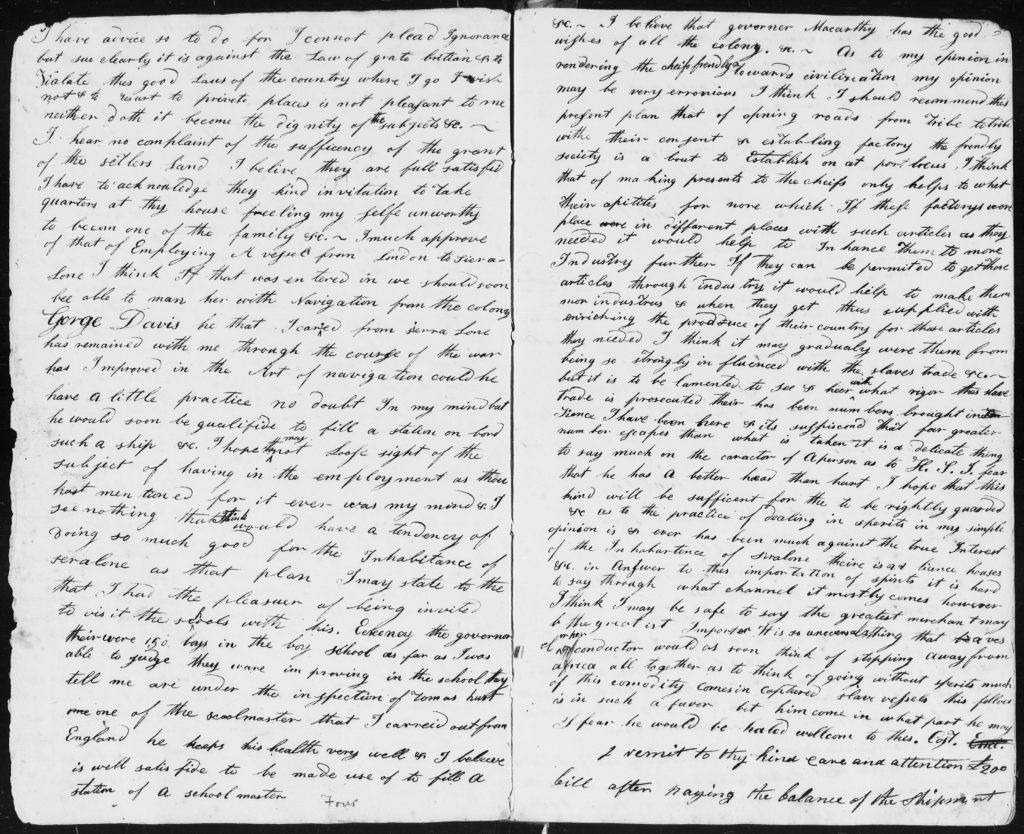 I have advice so to do for I connot plead Ignorance
but sue clearly it is against the Law of grate brittan & to
vialate the good laws of the country where I go I wish
not & to resort to private places is not pleasant to me
neither doth it become the dignity of the subjects &c. ~
I hear no complaint of the sufficency of the grant
of the setlers Land I belive they are full satisfied
I have to acknowledge they kind invitation to take
quarters at thy house freeling my selfe unworthy
to becom one of the family &c. ~ I much approve
of that of Employing A vessel from London to Siera-
Lone I think If that was entered in we should soon
bee able to man her with Navigation from the colony
Gorge Davis he that I caried from sierra Lone
has remained with me through the course of the war
has Improved in the Art of navigation could he
have a little practice no doubt In my mind but
he would soon be qualifide to fill a station on bord
such a ship &c. I hope may not Loose sight of the
subject of having in the employment as thou
hast mentioned for it ever was my mind & I
see nothing that think would have a tendency of
doing so much good for the Inhabitance of
seralone as that plan I may state to the
that I had the pleasuer of being invited
to visit the scools with his. Exenay the governor
their were 150 boys in the boy school as far as I was
able to judge they ware improving in the school they
tell me are under the inspection of Tomas hurt
one one of the scoolmaster that I carreid out from
England he keeps his health very well & I believe
is well satisfide to be made use of to fill A
station of A schoolmaster
Four
&c. ~ I believe that governer Macarthy has the good
wishes of all the colony. &c. ~ As to my opinion in
rendering the cheifs friendly towards civilization my opinion
may be very erronious I think I should recommend the
present plan that of opning roads from Tribe to tribe
withe their consent & establing factory the frendly
society is a bout to Establish on at port locus, I think
that of making presents to the cheifs only helps to whet
their apitites for more which If these factorys were
place were in different places with such articles as they
needed it would help to In hance them to more
Industry further If they can be permited to get those
articles through industry it would help to make them
mor industrous & when they get thus supplied with
enriching the produce of their country for those articles
they needed I think it may gradualy were them from
being so strongly influenced with the slaves trade &c. ~
but it is to be lamented to see & heer with what rigor this slave
trade is prosecuted their has been numbers brought in
Sience I have been here & its suffisciond that far greater
number escapes than what is taken it is a delicate thing
to say much on the caractor of A person as to H. S. I fear
that he has A better head than hart I hope that this
hind will be sufficent for the to be rightly guarded
&c as to the practice of dealing in sperits in my simple
opinion is & ever has been much against the true Interest
of the Inhabartence of Siralone theire is as liance houses
&c. in Answer to this importation of spirits it is hard
to say through what channel it mostly comes however
I think I may be safe to say the greatest merchant may
b the greatist Importer It is so unconsal thing that
conductor would as soon think of stopping away from
africa all together as to think of going without sperits much
of this comodity comes in captured slave vessels this fellow
is in such a faver let him come in what part he may
I fear he would be hated wellcom to this. Capt.
I remit to thy kind care and attention £200
bill after paying the balance of the shipment